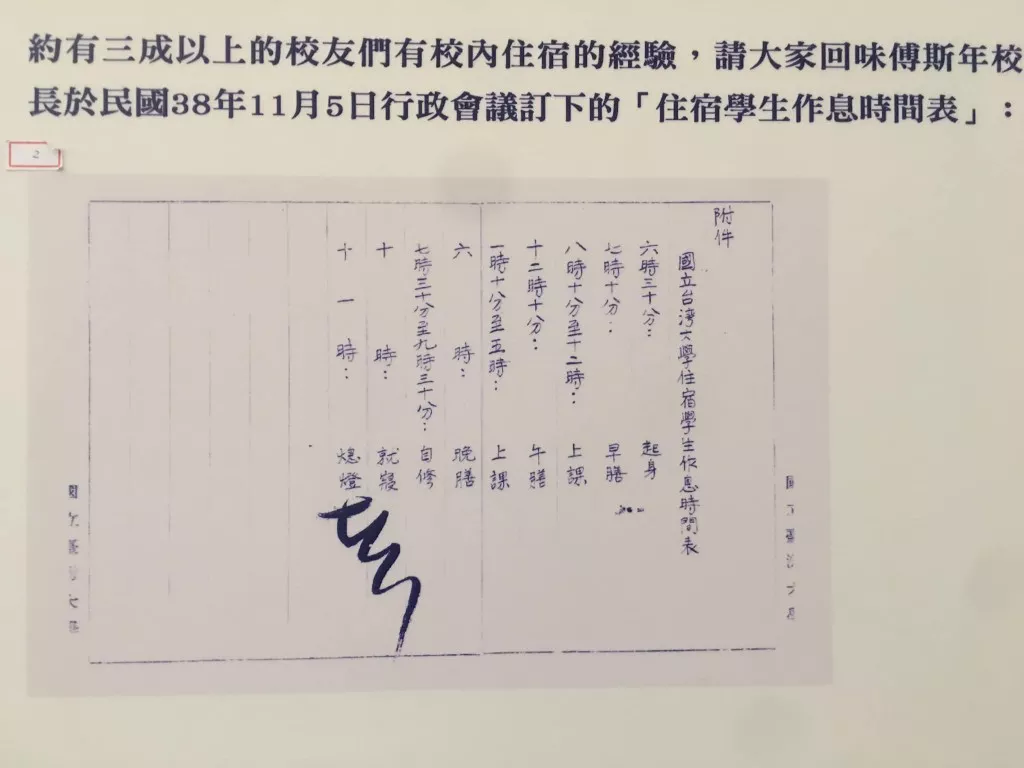 約有三成以上的校友們有校內住宿的經驗，請大家回味傅斯年校
長於民國38年11月5日行政會議訂下的「住宿學生作息時間表」：
2
附件
國立台灣大學住宿學生作息時間表
六時三十分：起身
七時十分：早膳
八時十分至十二時：上課
十二時十分：午膳
一時十分至五時：上課
六時：晚膳
七時三十分至九時三十分：自修
十時：就寢
十一時：熄燈